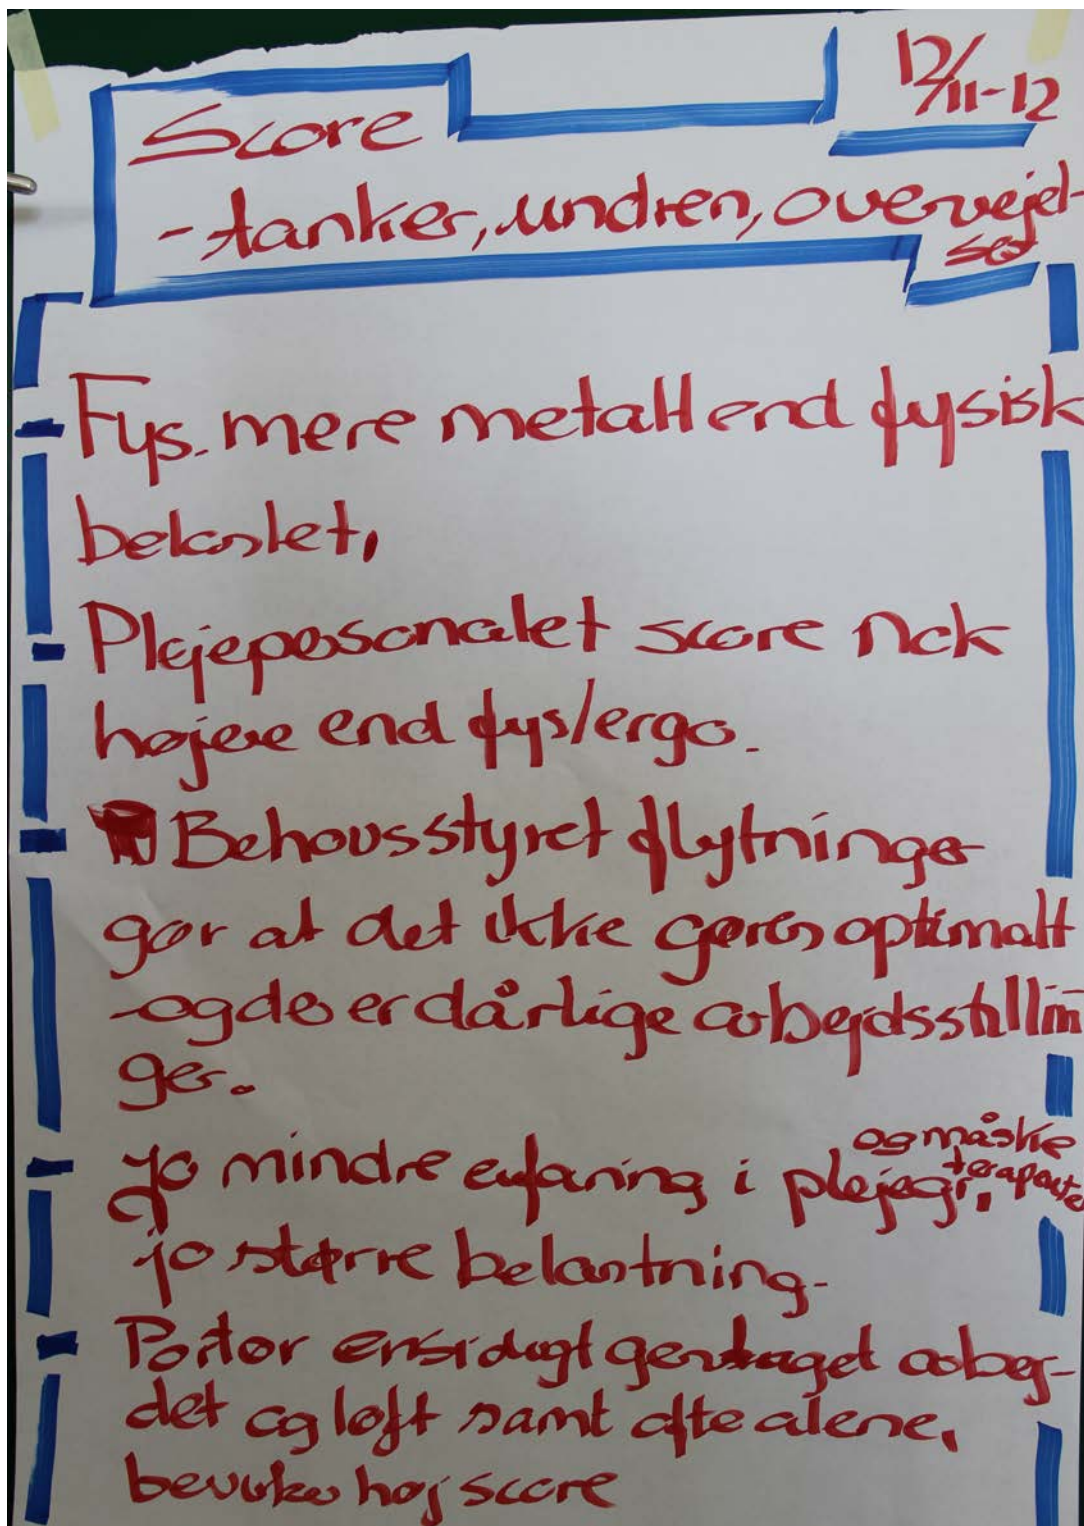 12/11-12
Score
- tanker, undren, overvejel-
ser
Fys. mere metalt end fysisk
belastet.
Plejepersonalet score nok
højere end fys/ergo.
Behovsstyret flytninger
gør at det ikke gøres optimalt
- og der er dårlige arbejdsstillin
ger.
og måske
terapeuter
jo mindre erfaring i plejegr.
jo større belastning.
Portør ensidigt gentaget arbej-
det og løft samt ofte alene,
bevirker høj score